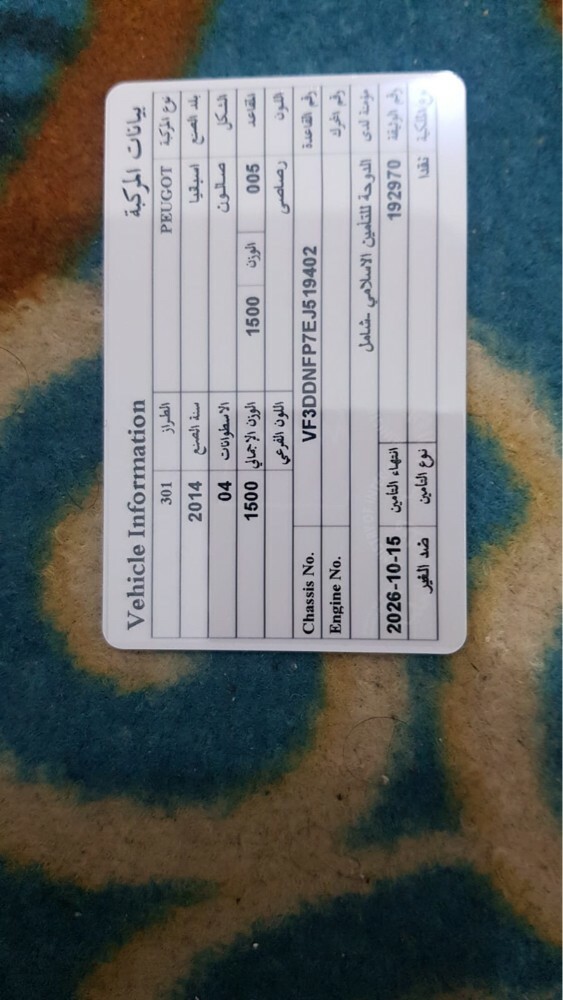 Vehicle Information بيانات المركبة
نوع المركبة PEUGOT الطراز 301
بلد الصنع اسبقيا سنة الصنع 2014
الشكل صالون الاسطوانات 04
المقاعد 005 الوزن 1500 الوزن الإجمالي 1500
اللون رصاصى اللون الفرعي
رقم القاعدة VF3DDNFP7EJ519402 Chassis No.
رقم المحرك Engine No.
مؤمنة لدى الدوحة للتأمين الاسلامي -شامل
رقم الوثيقة 192970 انتهاء التامين 2026-10-15
نقدا نوع التامين ضد الغير